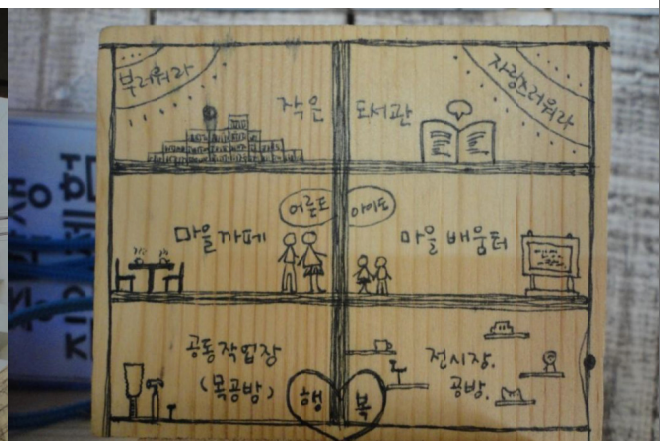 부러워라
자랑스러워라
작은 도서관
마을카페
어른도 아이도
마을 배움터
공동작업장
(목공방)
전시장.
공방.
행복